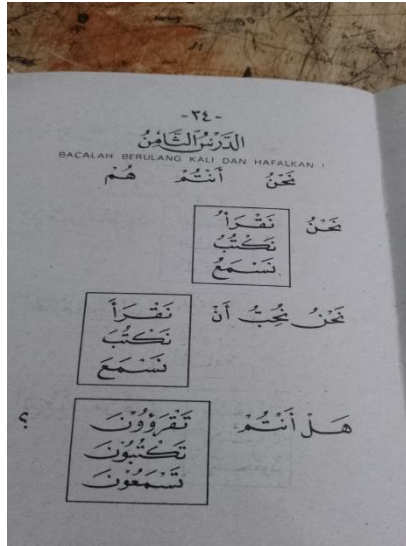 -٣٤-
الدَّرْسُ الثَّامِنُ
BACALAH BERULANG KALI DAN HAFALKAN !
نَحْنُ أَنْتُمْ هُمْ
نَحْنُ نَقْرَأُ
نَكْتُبُ
نَسْمَعُ
نَحْنُ نُحِبُّ أَنْ نَقْرَأَ
نَكْتُبَ
نَسْمَعَ
هَلْ أَنْتُمْ تَقْرَؤُوْنَ ؟
تَكْتُبُوْنَ
تَسْمَعُوْنَ